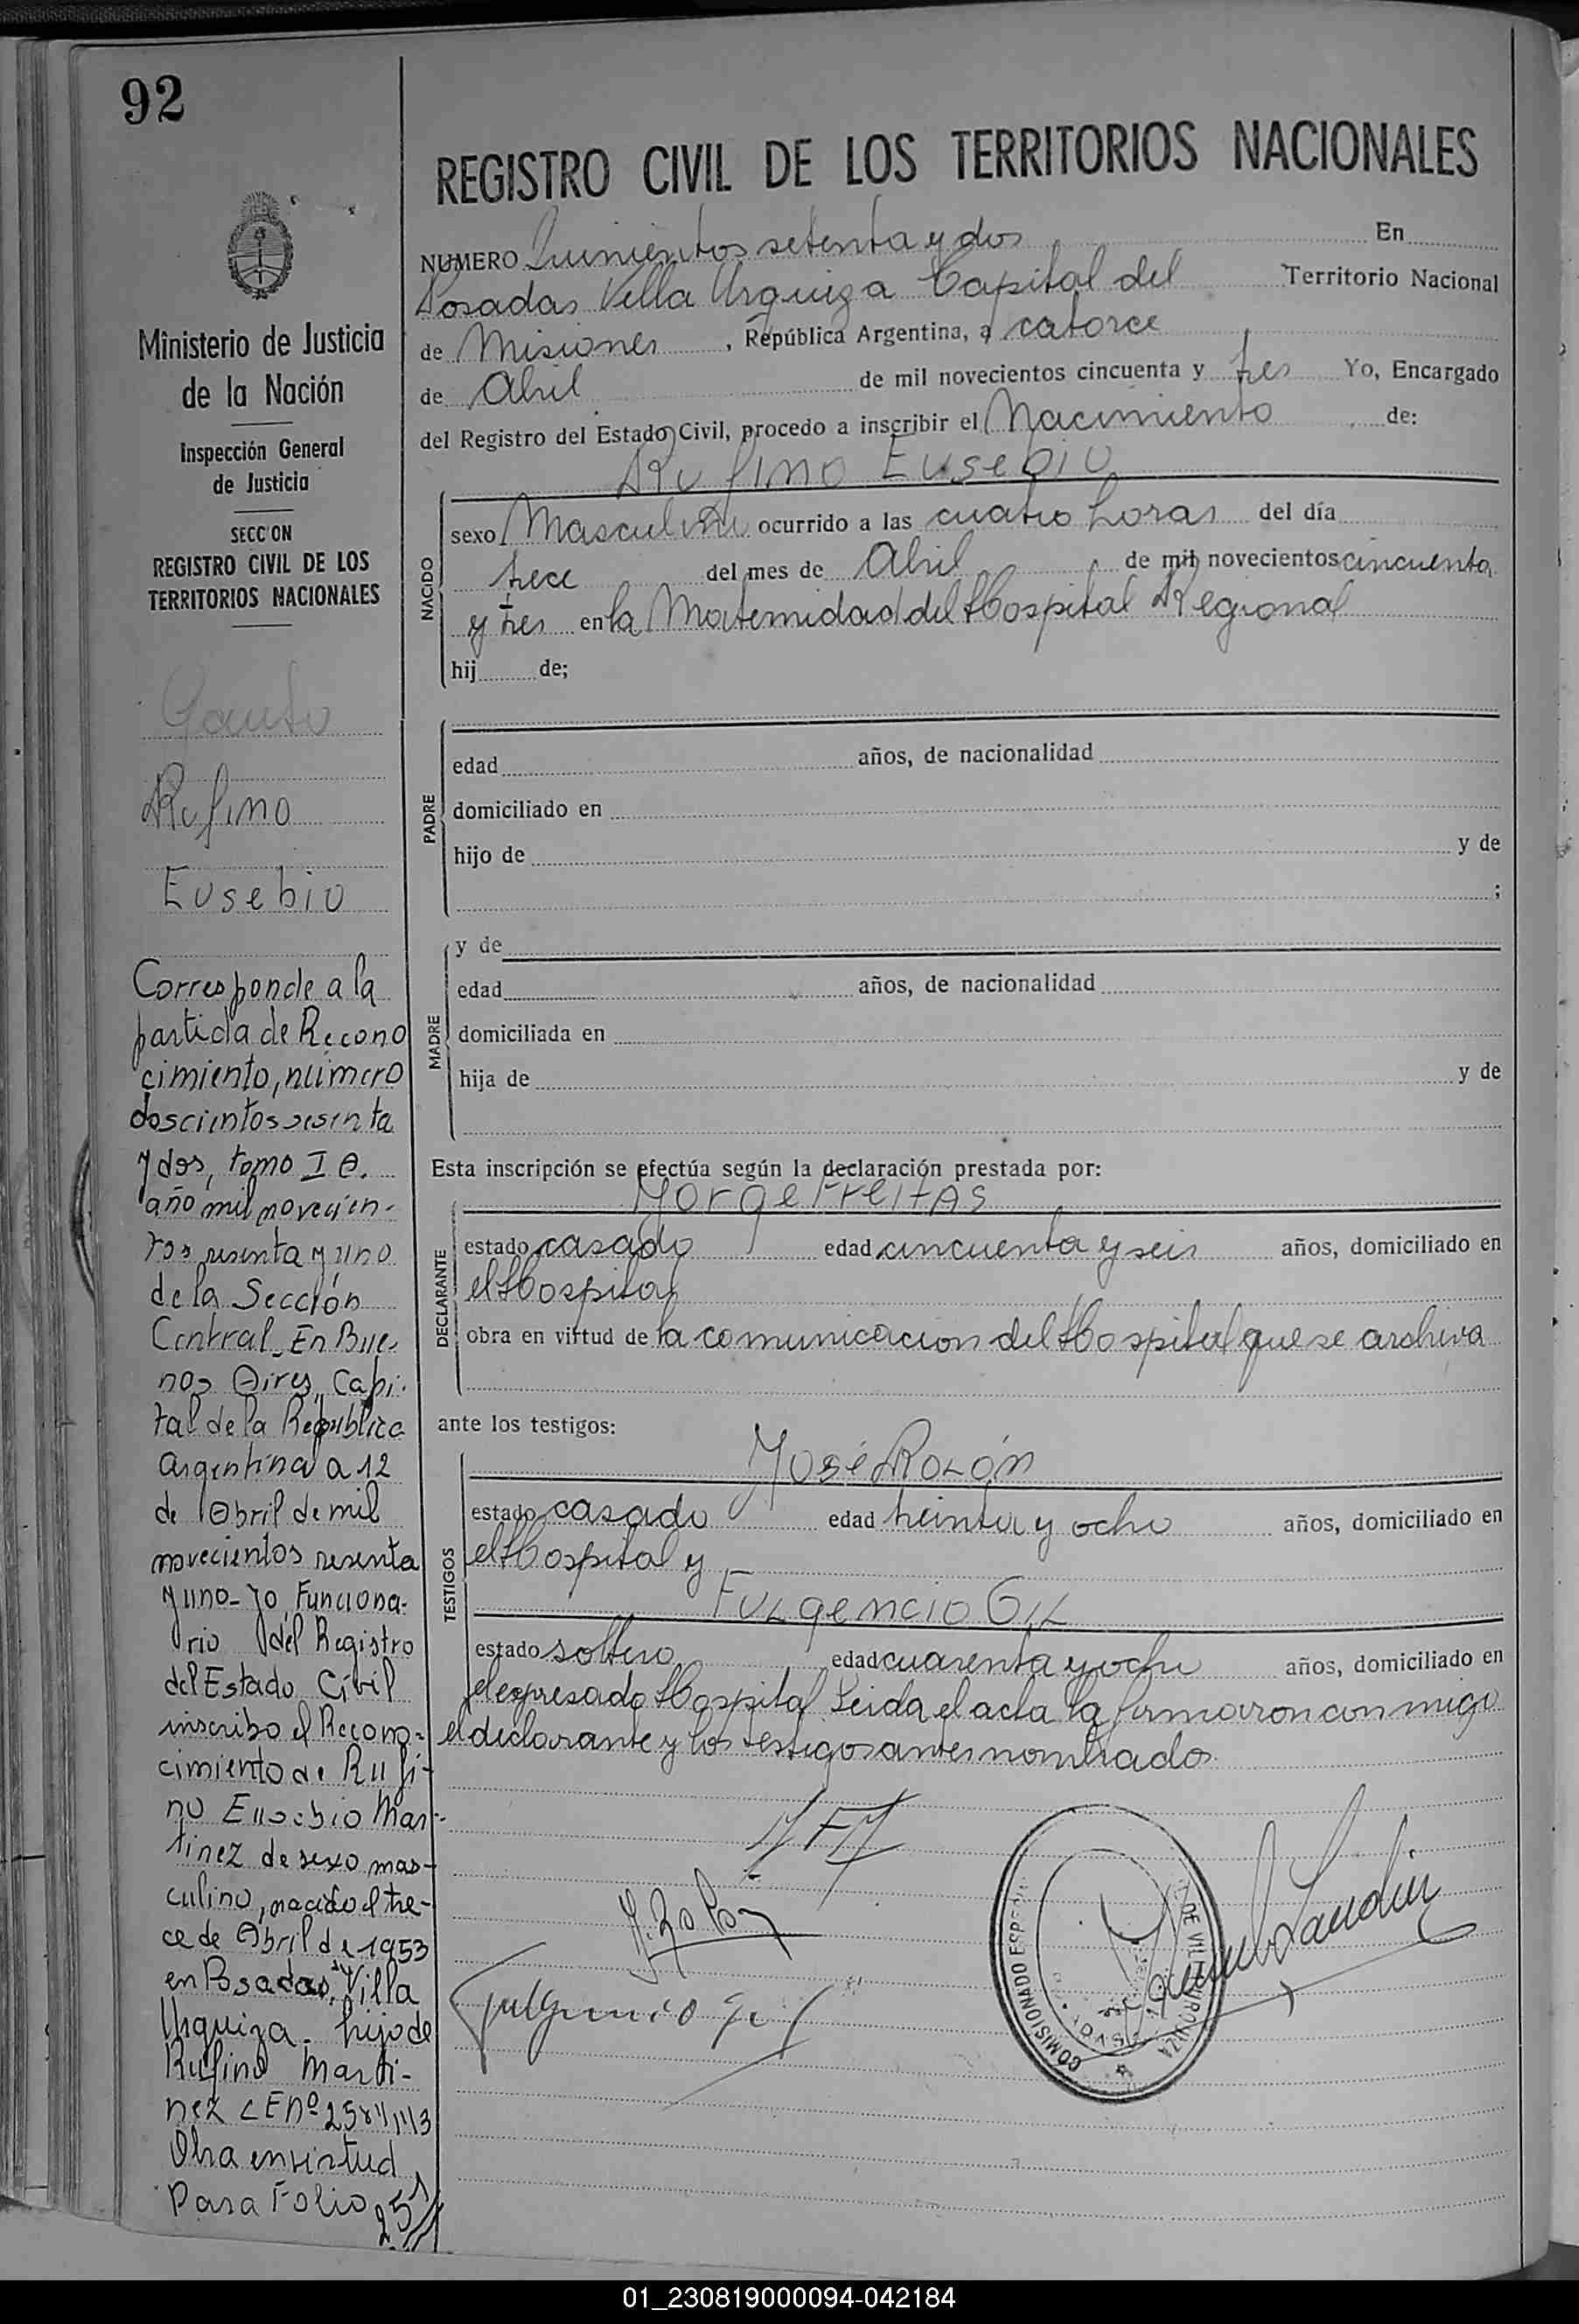 92
Ministerio de Justicia
de la Nación
Inspección General
de Justicia
SECCION
REGISTRO CIVIL DE LOS
TERRITORIOS NACIONALES
Gauto
Rufino
Eusebio
Corresponde a la
partida de Recono
cimiento, número
doscientos sesenta
y dos, tomo I
año mil novecien-
tos sesenta y uno
de la Sección
Central. En Bue-
nos Aires, Capi-
tal de la República
Argentina a 12
de Abril de mil
novecientos sesenta
y uno - Yo Funciona-
rio del Registro
del Estado Civil
inscribo el Recono-
cimiento de Rufi-
no Eusebio Mar-
tinez de sexo mas-
culino, nacido el tre-
ce de Abril de 1953
en Posadas, Villa
Urquiza. hijo de
Rufino Marti-
nez
Obra en virtud
Pasa Folio 251
REGISTRO CIVIL DE LOS TERRITORIOS NACIONALES
NUMERO Quinientos setenta y dos En
Posadas Villa Urquiza Capital del Territorio Nacional
de Misiones, República Argentina, a catorce
de Abril de mil novecientos cincuenta y tres Yo, Encargado
del Registro del Estado Civil, procedo a inscribir el Nacimiento de:
Rufino Eusebio
NACIDO
sexo Masculino ocurrido a las cuatro horas del día
trece del mes de Abril de mil novecientos cincuenta
y tres en la Maternidad del Hospital Regional
hij de;
PADRE
edad años, de nacionalidad
domiciliado en
hijo de y de
;
MADRE
y de
edad años, de nacionalidad
domiciliada en
hija de y de
Esta inscripción se efectúa según la declaración prestada por:
Jorge Freitas
DECLARANTE
estado casado edad cincuenta y seis años, domiciliado en
el Hospital
obra en virtud de la comunicacion del Hospital que se archiva
ante los testigos:
José Rolón
TESTIGOS
estado casado edad treinta y ocho años, domiciliado en
el Hospital y
Fulgencio Gil
estado soltero edad cuarenta y ocho años, domiciliado en
el expresado Hospital. Leida el acta la firmaron con migo
el declarante y los testigos antes nombrados.
J. Rolón
Fulgencio Gil
COMISIONADO DE VILLA URQUIZA
01_230819000094-042184